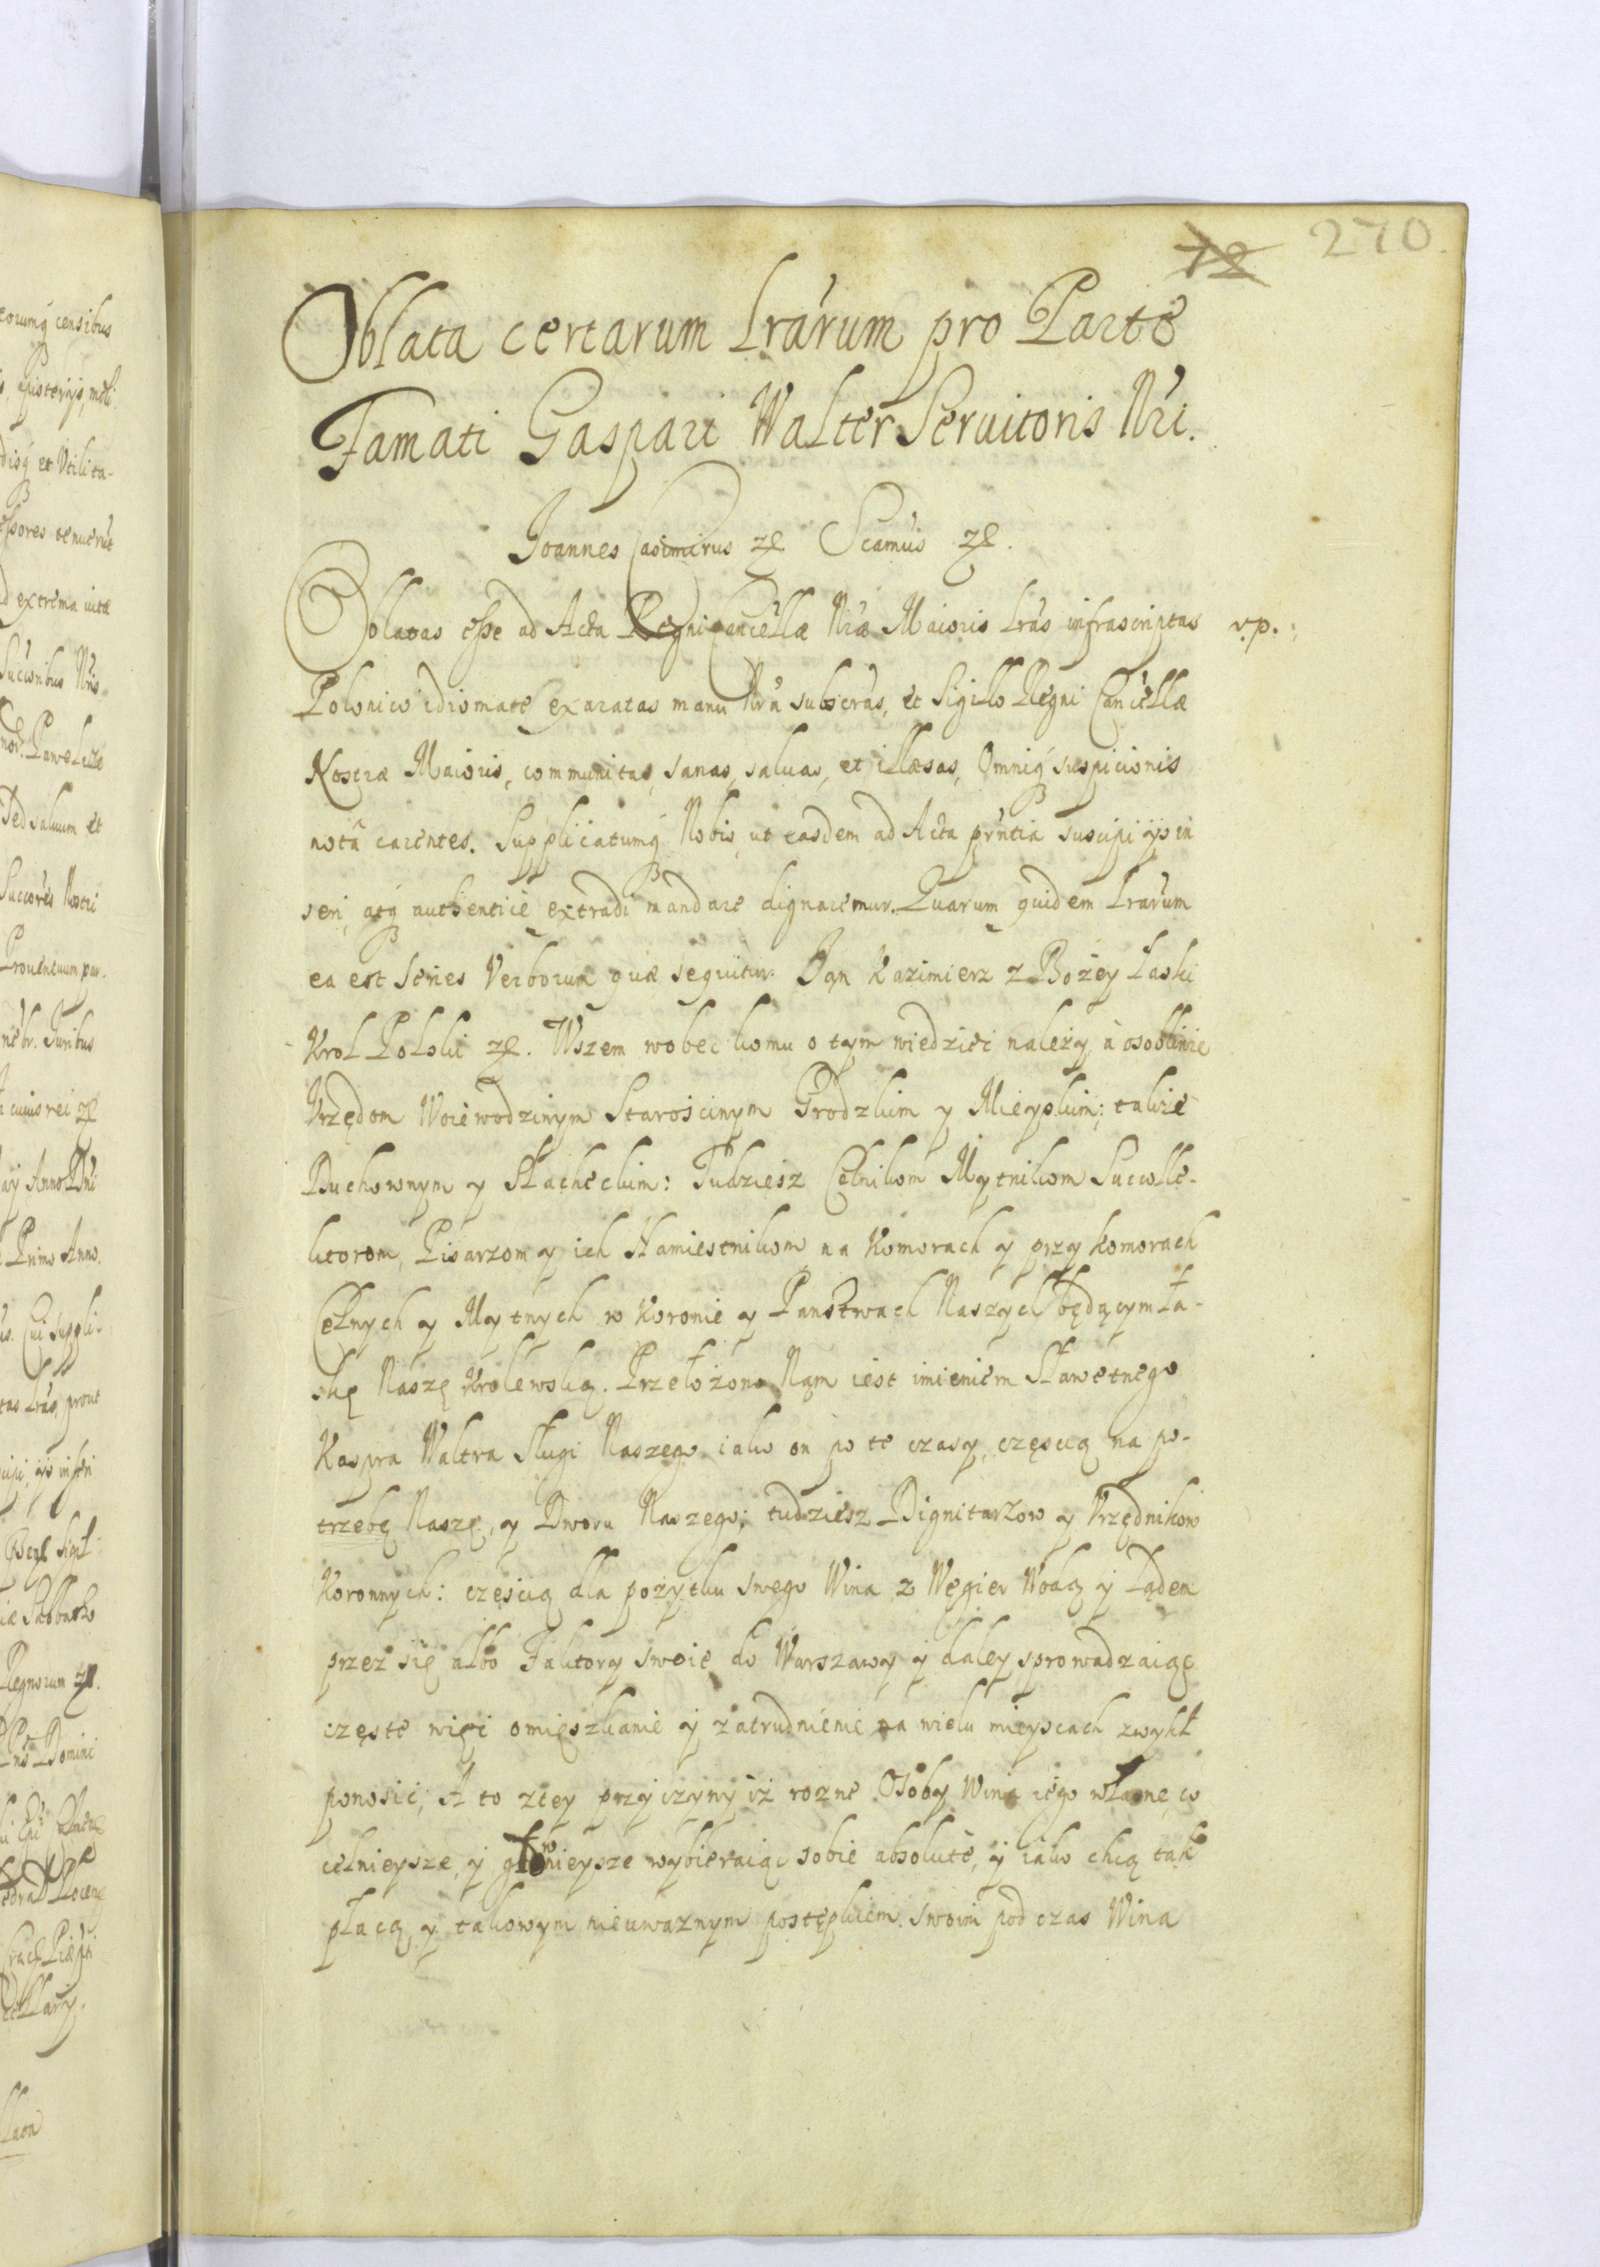 270
12
Oblata certarum Lrarum pro Parte
Famati Gaspari Walter Servitoris Nri.
Joannes Casimirus etc. Scamus etc.
Oblatas esse ad Acta Regni Cancellæ Nræ Maioris Lras infrascriptas v.p.
Polonico idiomate exaratas manu Nra subscras, et Sigillo Regni Cancellæ
Nostræ Maioris, communitas, sanas, saluas, et illæsas, Omniq suspicionis
nota carentes. Supplicatumq Nobis, ut easdem ad Acta prntia suscipi ijs in
seri, atq authentice extradi mandare dignaremur. Quarum quidem Lrarum
ea est Series Verborum quæ sequitur. Ian Kazimierz z Bożey Łaski
Krol Polski etc. Wszem wobec komu o tym wiedzieć należy, à osobliwie
Vrzędom Woiewodzinym Starościnym Grodzkim y Mieyskim; takze
Duchownym y Slacheckim: Tudziesz Celnikom Mytnikom Succolle-
ktorom, Pisarzom y ich Namiestnikom na Komorach y przykomorach
Celnych y Mytnych w Koronie y Panstwach Naszych będącym Ła-
skę Naszę Krolewską. Przełożono Nam iest imieniem Sławetnego
Kaspra Waltra Sługi Naszego iako on po te czasy, częscią na po-
trzebę Naszę, y Dworu Naszego; tudziesz Dignitarzow y Vrzędnikow
Koronnych: częscią dla pożytku swego Wina z Węgier Wodą y Lądem
przez się albo Faktory swoie do Warszawy y daley sprowadzaiąc
częste więc omięszkanie y zatrudnienie na wielu mieyscach zwykł
ponosić; A to ztey przyczyny iż rozne Osoby Wina iego własne, co
celnieysze, y głownieysze wybieraiąc sobie absolute, y iako chcą tak
płacą, y takowym nieuwaznym postępkiem swoim pod czas Wina